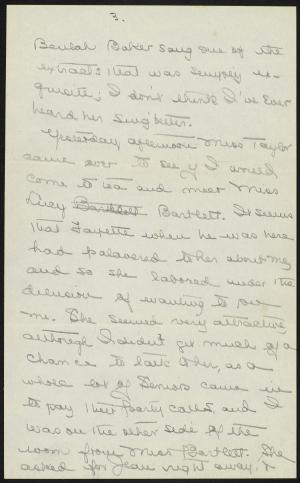 3.
Beulah Baker sang one of the
extracts that was simply ex-
quisite; I don't think I've ever
heard her sing better.
Yesterday afternoon Miss Taylor
came over to see if I would
come to tea and meet Miss
Lucy Bartlett Bartlett. It seems
that Fayette when he was here
had palavered to her about my
and so she labored under the
delusion of wanting to see
me. She seemed very attractive,
although I couldn't get much of a
chance to talk to her, as a
whole lot of Seniors came in
to pay their party calls, and I
was on the other side of the
room from Miss Bartlett. She
asked for Jean right away, &